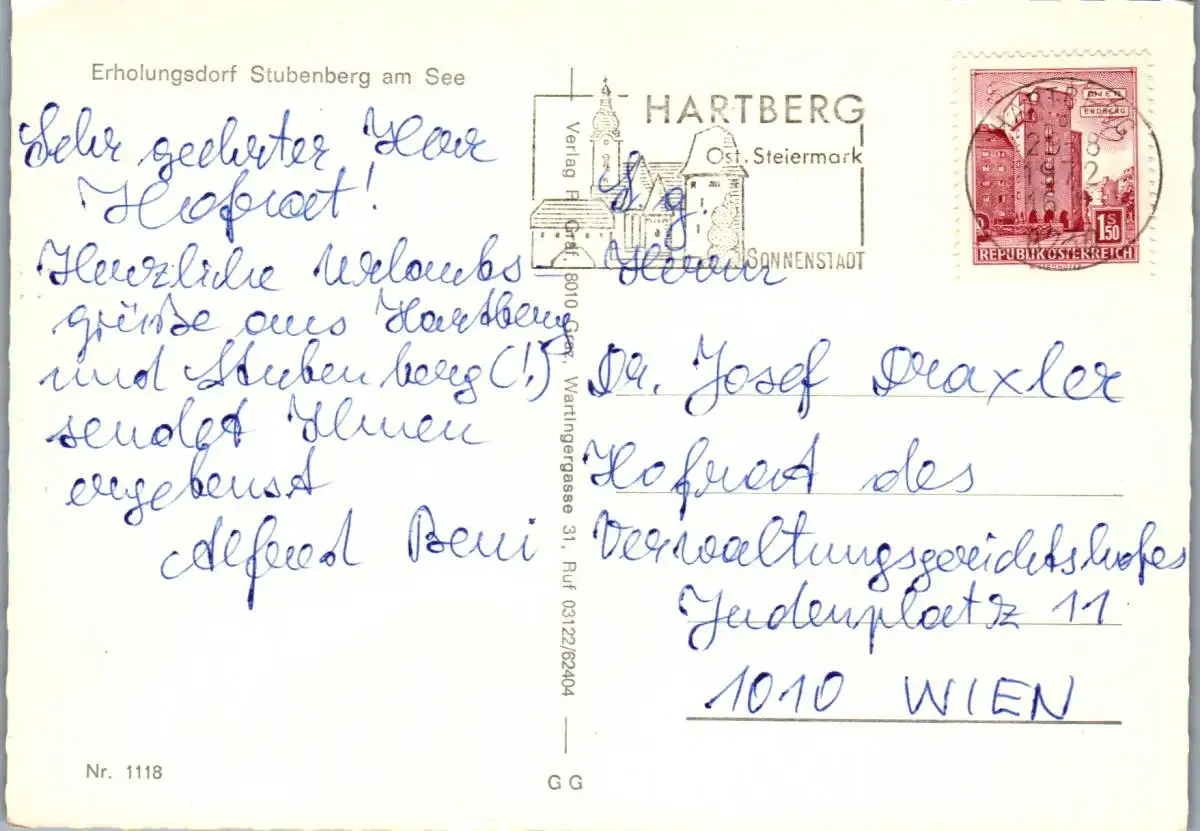 Erholungsdorf Stubenberg am See
Sehr geehrter Herr
Hofrat!
Herzliche Urlaubs-
grüße aus Hartberg
und Stubenberg(!)
sendet Ihnen
ergebenst
Alfred Beni
Nr. 1118
Verlag P. Gräf, 8010 Graz, Wartingergasse 31, Ruf 03122/62404
GG
HARTBERG
Ost. Steiermark
SONNENSTADT
ERDBERG
1 S 50
REPUBLIK ÖSTERREICH
S. g.
Herrn
Dr. Josef Draxler
Hofrat des
Verwaltungsgerichtshofes
Judenplatz 11
1010 WIEN